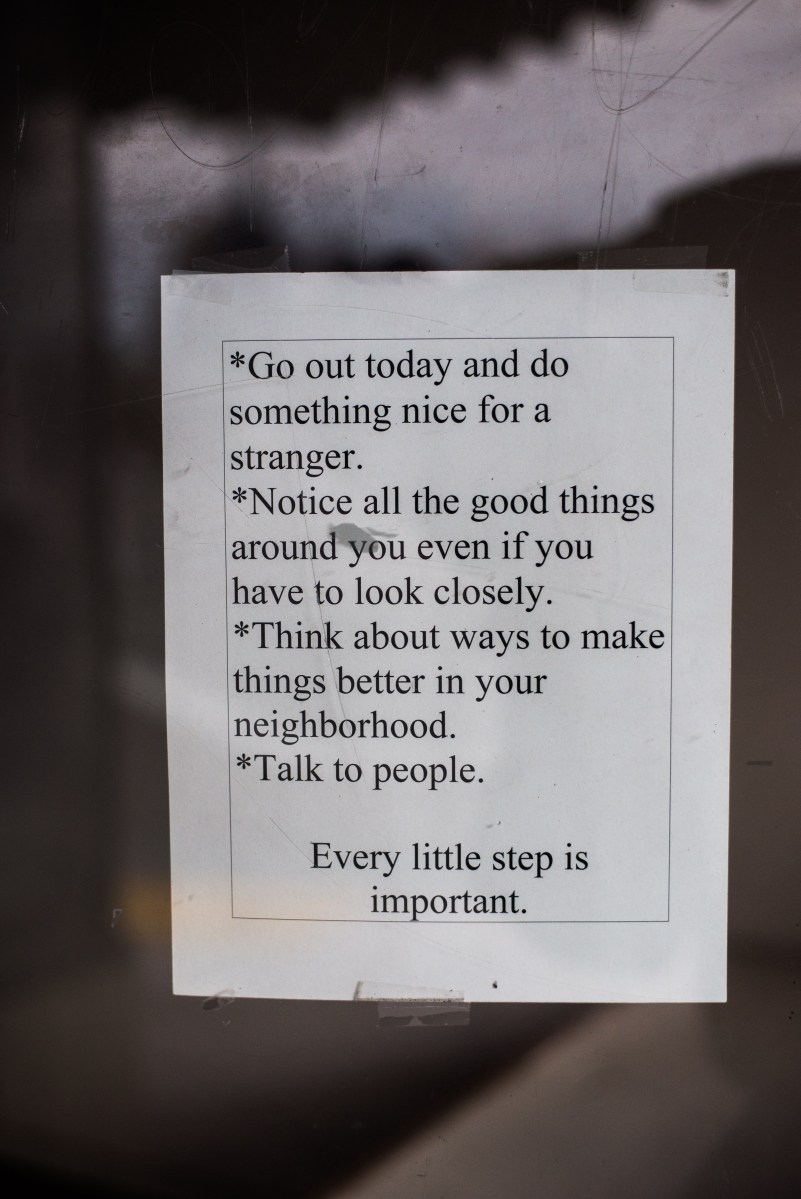 *Go out today and do
something nice for a
stranger.
*Notice all the good things
around you even if you
have to look closely.
*Think about ways to make
things better in your
neighborhood.
*Talk to people.
Every little step is
important.